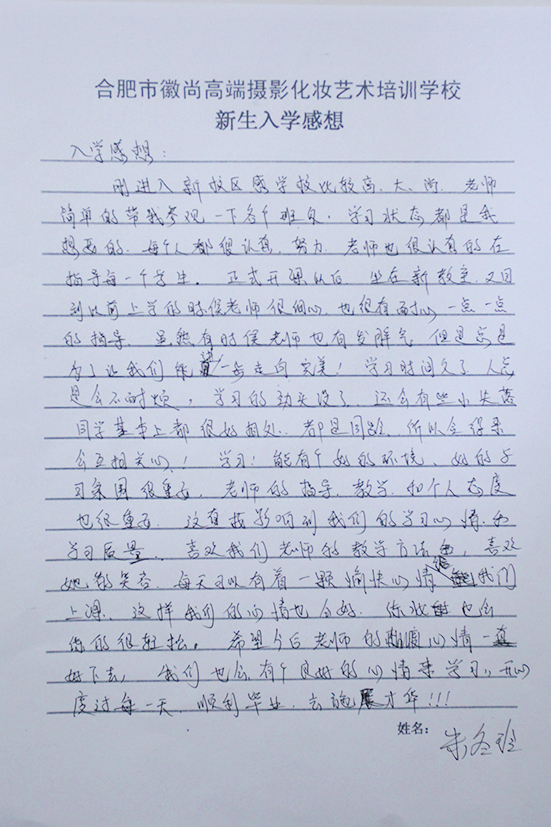 合肥市徽尚高端摄影化妆艺术培训学校
新生入学感想
入学感想：
刚进入新校区感学校比较高、大、尚。老师
简单的带我参观一下各个班级，学习状态都是我
想要的，每个人都很认真、努力，老师也很认真的在
指导每一个学生。正式开课以后，坐在新教室，又回
到以前上学的时候老师很细心，也很有耐心一点一点
的指导，虽然有时候老师也有发脾气，但是总是
为了让我们能一步走向完美！学习时间久了人总
是会不耐烦，学习的劲头没了，还会有些小失落
同学基本上都很好相处，都是同龄，所以会得来
会互相关心！学习！能有个好的环境、好的学
习氛围很重要，老师的指导、教学和个人态度
也很重要，这直接影响到我们的学习心情和
学习质量，喜欢我们老师的教学方法，喜欢
她的笑容，每天可以有着一颗愉快心情给我们
上课，这样我们的心情也会好，你也会
的很轻松。希望今后老师的心情一直
好下去，我们也会有个良好的心情来学习，开心
度过每一天，顺利毕业，去施展才华！！！
姓名：
朱冬